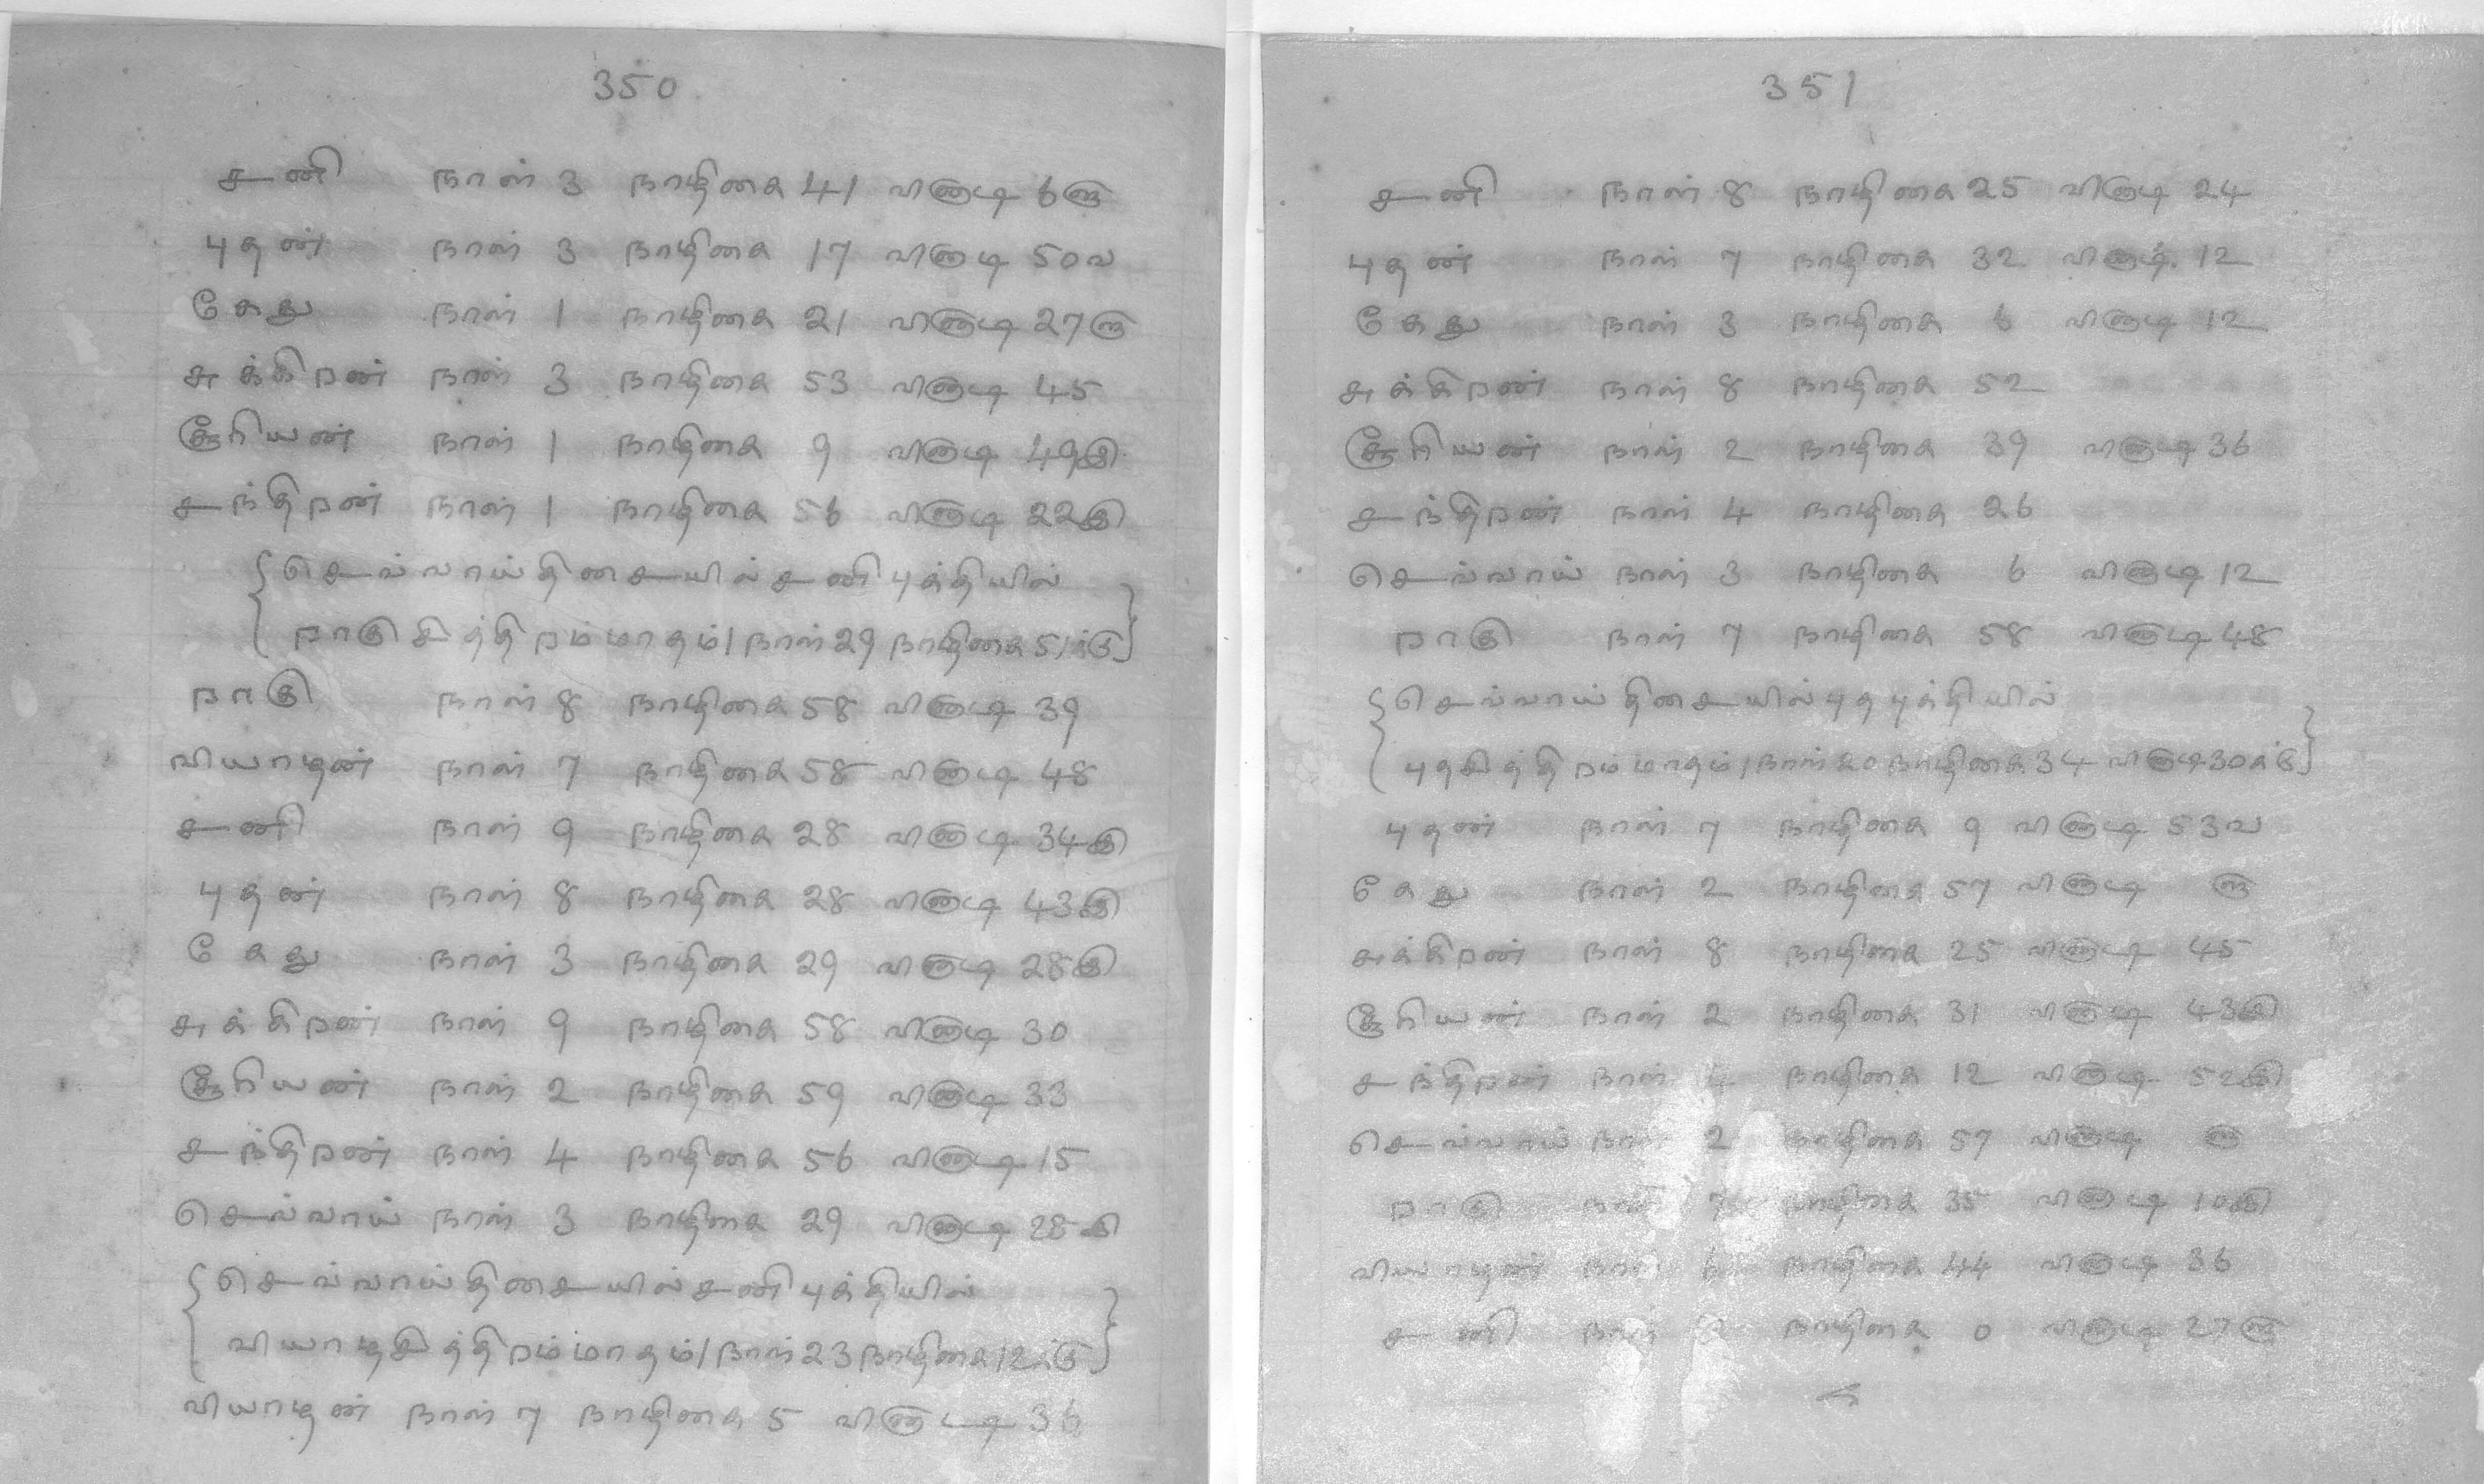 350
சனி நாள் 3 நாழிகை 41 விநாடி 6௫
புதன் நாள் 3 நாழிகை 17 விநாடி 50வ
கேது நாள் 1 நாழிகை 21 விநாடி 27௫
சுக்கிறன் நாள் 3 நாழிகை 53 விநாடி 45
சூரியன் நாள் 1 நாழிகை 9 விநாடி 49
சந்திறன் நாள் 1 நாழிகை 56 விநாடி 22
{செவ்வாய் திசையில் சனி புக்தியில்
றாகு சித்திறம் மாதம் 1 நாள் 29 நாழிகை 51க்கு}
றாகு நாள் 8 நாழிகை 58 விநாடி 39
வியாழன் நாள் 7 நாழிகை 58 விநாடி 48
சனி நாள் 9 நாழிகை 28 விநாடி 34
புதன் நாள் 8 நாழிகை 28 விநாடி 43
கேது நாள் 3 நாழிகை 29 விநாடி 28
சுக்கிறன் நாள் 9 நாழிகை 58 விநாடி 30
சூரியன் நாள் 2 நாழிகை 59 விநாடி 33
சந்திறன் நாள் 4 நாழிகை 56 விநாடி 15
செவ்வாய் நாள் 3 நாழிகை 29 விநாடி 28
{செவ்வாய் திசையில் சனி புக்தியில்
வியாழ சித்திறம் மாதம் 1 நாள் 23 நாழிகை 12க்கு}
வியாழன் நாள் 7 நாழிகை 5 விநாடி 36
351
சனி நாள் 8 நாழிகை 25 விநாடி 24
புதன் நாள் 7 நாழிகை 32 விநாடி 12
கேது நாள் 3 நாழிகை 6 விநாடி 12
சுக்கிறன் நாள் 8 நாழிகை 52
சூரியன் நாள் 2 நாழிகை 39 விநாடி 36
சந்திறன் நாள் 4 நாழிகை 26
செவ்வாய் நாள் 3 நாழிகை 6 விநாடி 12
றாகு நாள் 7 நாழிகை 58 விநாடி 48
{செவ்வாய் திசையில் புத புக்தியில்
புத சித்திறம் மாதம் 1 நாள் 20 நாழிகை 34 விநாடி 30க்கு}
புதன் நாள் 7 நாழிகை 9 விநாடி 53வ
கேது நாள் 2 நாழிகை 57 விநாடி ௫
சுக்கிறன் நாள் 8 நாழிகை 25 விநாடி 45
சூரியன் நாள் 2 நாழிகை 31 விநாடி 43
சந்திறன் நாள் 4 நாழிகை 12 விநாடி 52
செவ்வாய் நாள் 2 நாழிகை 57 விநாடி ௫
றாகு நாள் 7 நாழிகை 35 விநாடி 10
வியாழன் நாள் 6 நாழிகை 44 விநாடி 36
சனி நாள் 8 நாழிகை 0 விநாடி 27௫